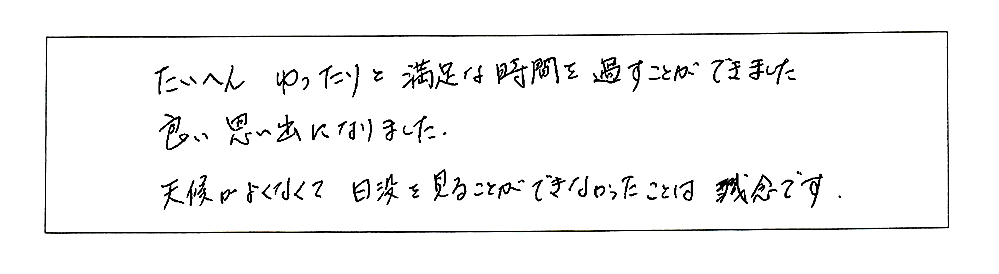 たいへん ゆったりと 満足な時間を 過すことができました
良い 思い出になりました.
天候がよくなくて 日没を見ることができなかったことは 残念です.